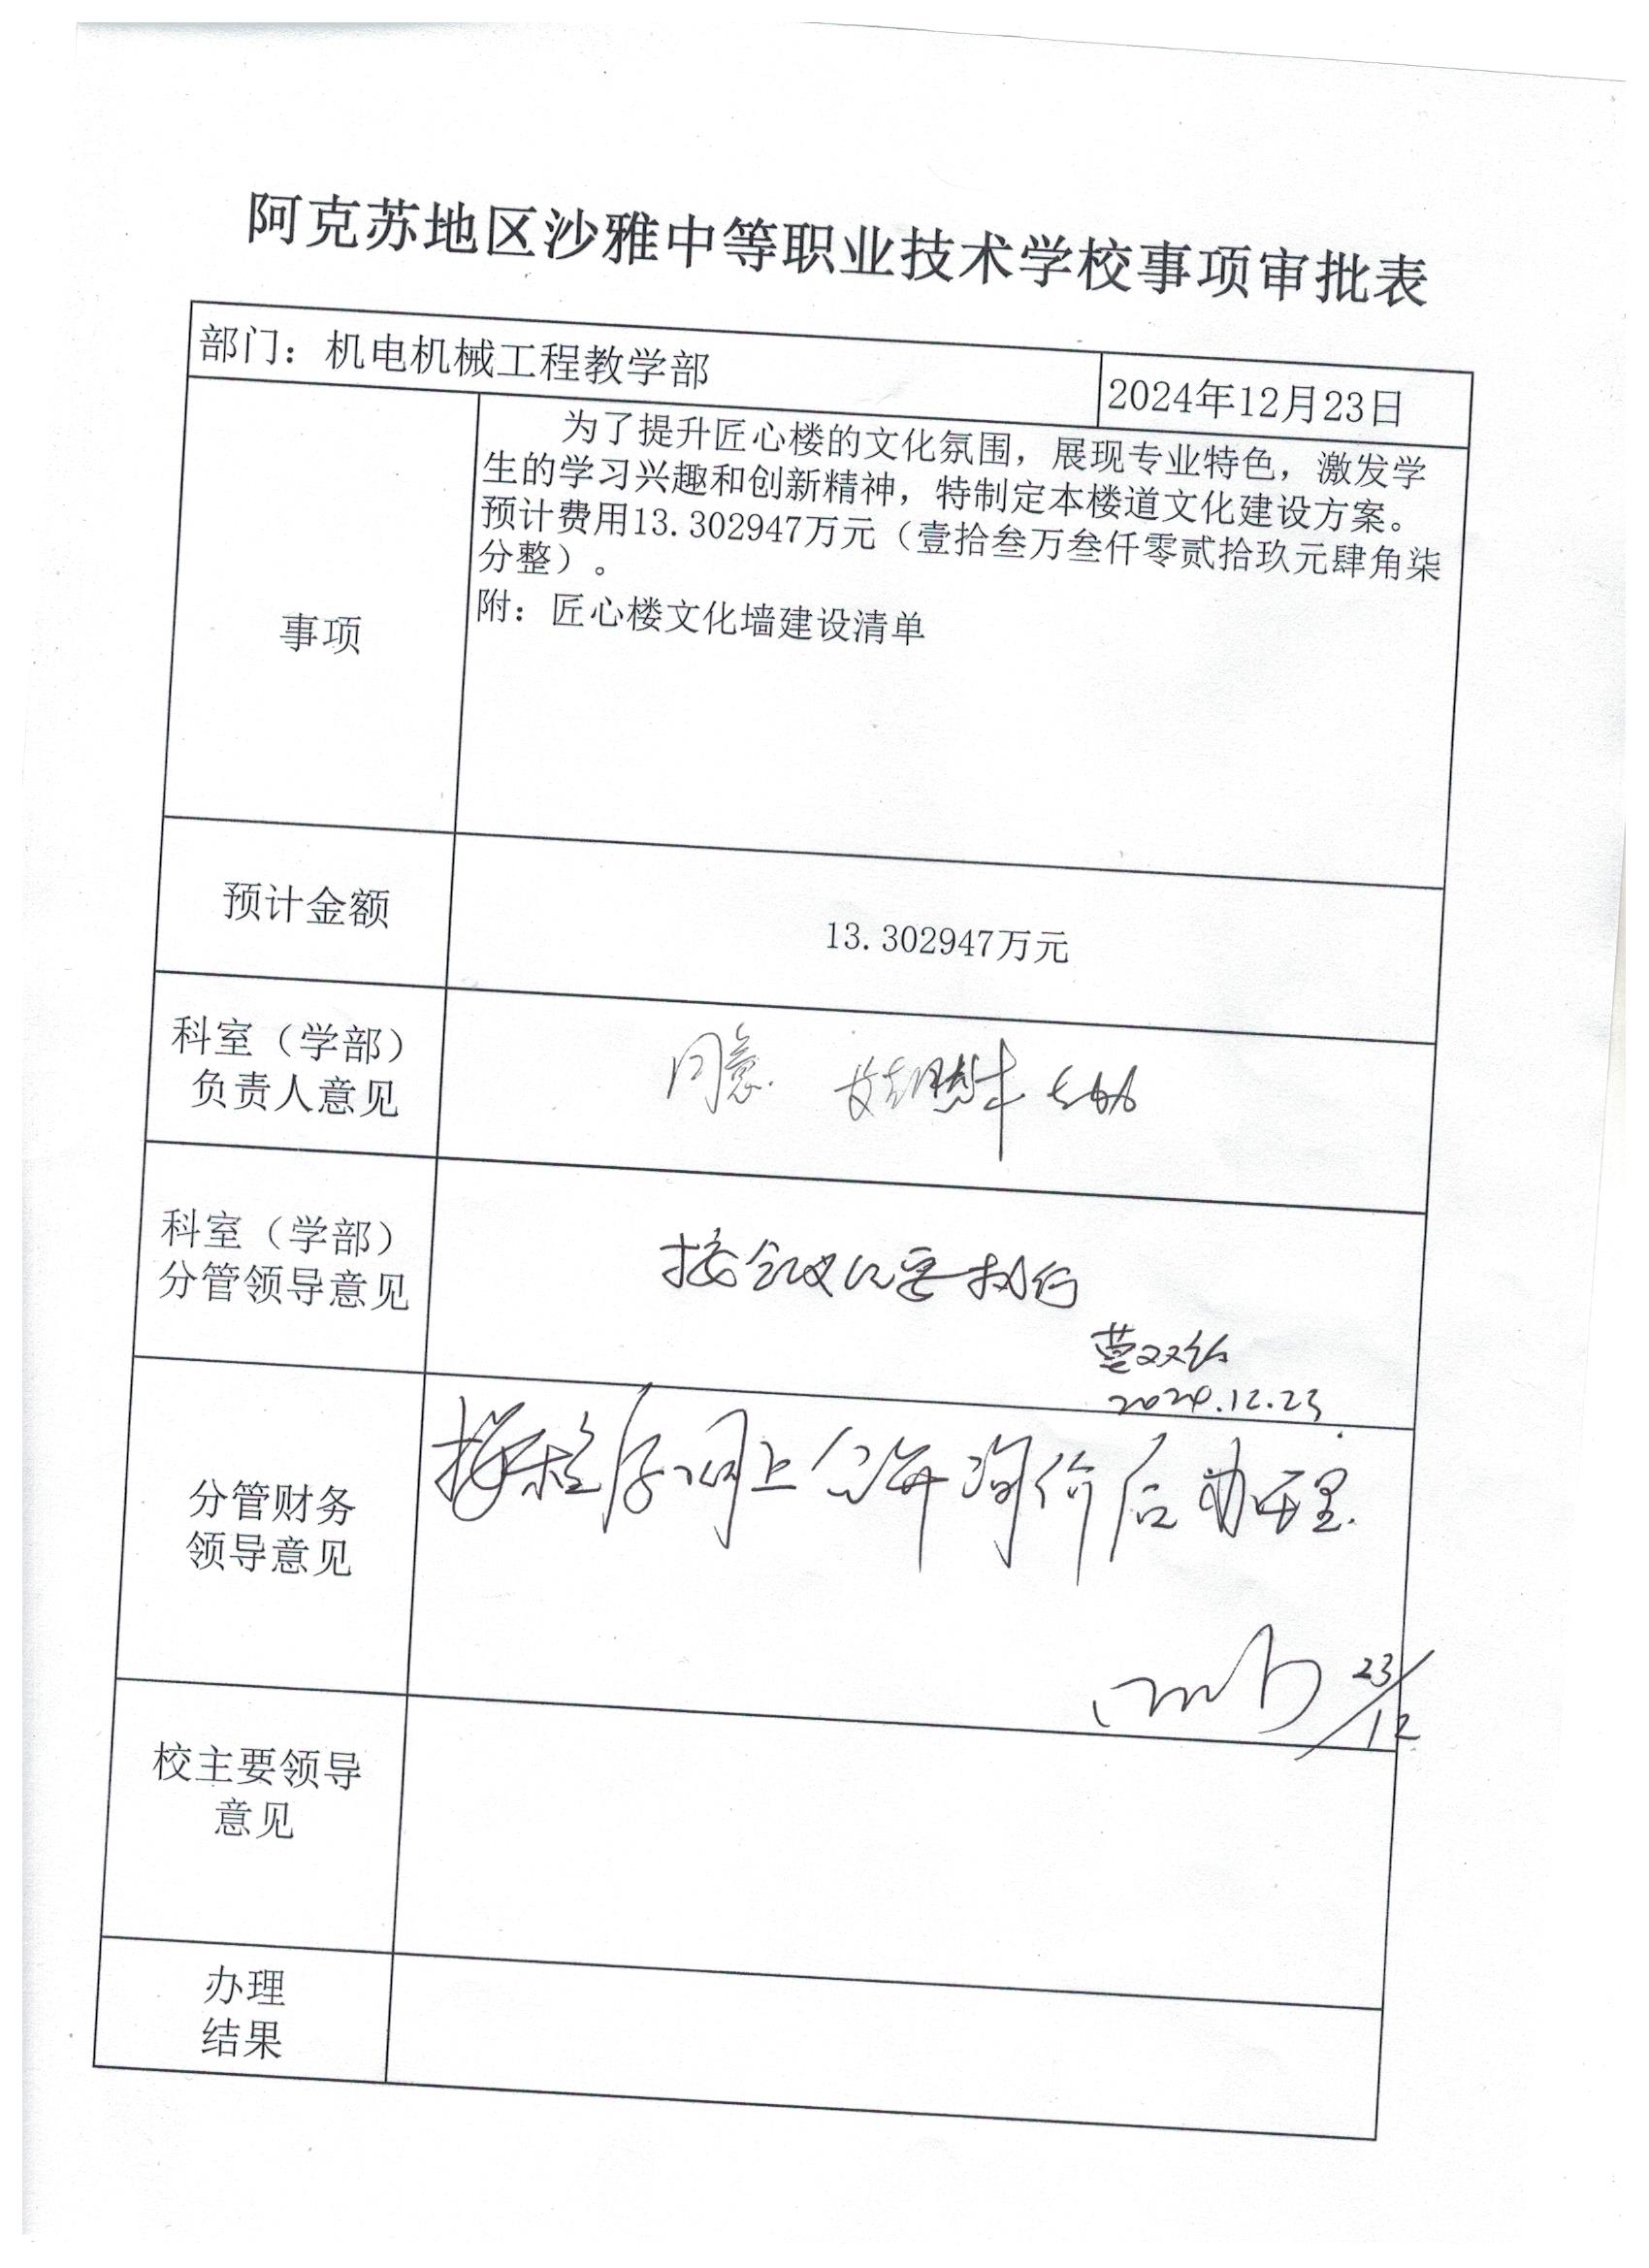 阿克苏地区沙雅中等职业技术学校事项审批表
部门：机电机械工程教学部
2024年12月23日
事项
为了提升匠心楼的文化氛围，展现专业特色，激发学
生的学习兴趣和创新精神，特制定本楼道文化建设方案。
预计费用13.302947万元（壹拾叁万叁仟零贰拾玖元肆角柒
分整）。
附：匠心楼文化墙建设清单
预计金额
13.302947万元
科室（学部）
负责人意见
同意
科室（学部）
分管领导意见
按会议纪要执行
2024.12.23
分管财务
领导意见
按程序网上公开询价后办理.
23/12
校主要领导
意见
办理
结果